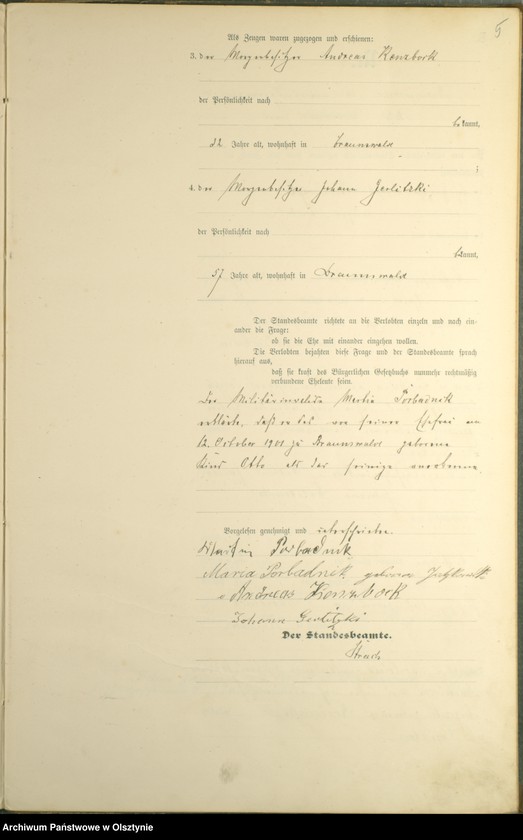 5
Als Zeugen waren zugezogen und erschienen:
3. der Morgenbesitzer Andreas Konzbork
der Persönlichkeit nach
bekannt,
Jahre alt, wohnhaft in Braunswald
;
4. der Morgenbesitzer Johann Gerlitzki
der Persönlichkeit nach
bekannt,
57 Jahre alt, wohnhaft in Braunswald
Der Standesbeamte richtete an die Verlobten einzeln und nach ein-
ander die Frage:
ob sie die Ehe mit einander eingehen wollen.
Die Verlobten bejahten diese Frage und der Standesbeamte sprach
hierauf aus,
daß sie kraft des Bürgerlichen Gesetzbuchs nunmehr rechtmäßig
verbundene Eheleute seien.
Der Militärinvalide Martin Porbadnik
erklärte, daß er das von seiner Ehefrau am
12. October 1901 zu Braunswald geborene
Kind Otto als das seinige anerkenne.
Vorgelesen, genehmigt und unterschrieben.
Martin Porbadnik
Maria Porbadnik geborene
Andreas Konzbork
Johann Gerlitzki
Der Standesbeamte.
Archiwum Państwowe w Olsztynie